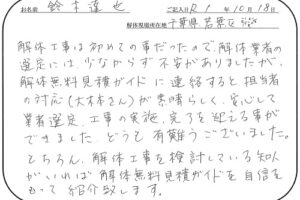 お名前 鈴木達也 ご記入日 R1年10月18日
解体現場所在地 千葉県若葉区
解体工事は初めての事だったので解体業者の
選定には、少なからず不安がありましたが、
解体無料見積ガイドに連絡すると担当者
の対応(大木さん)が素晴らしく、安心して
業者選定、工事の実施、完了を迎える事が
できました。どうも有難うございました。
もちろん、解体工事を検討している知人
がいれば解体無料見積ガイドを自信を
もって紹介致します。